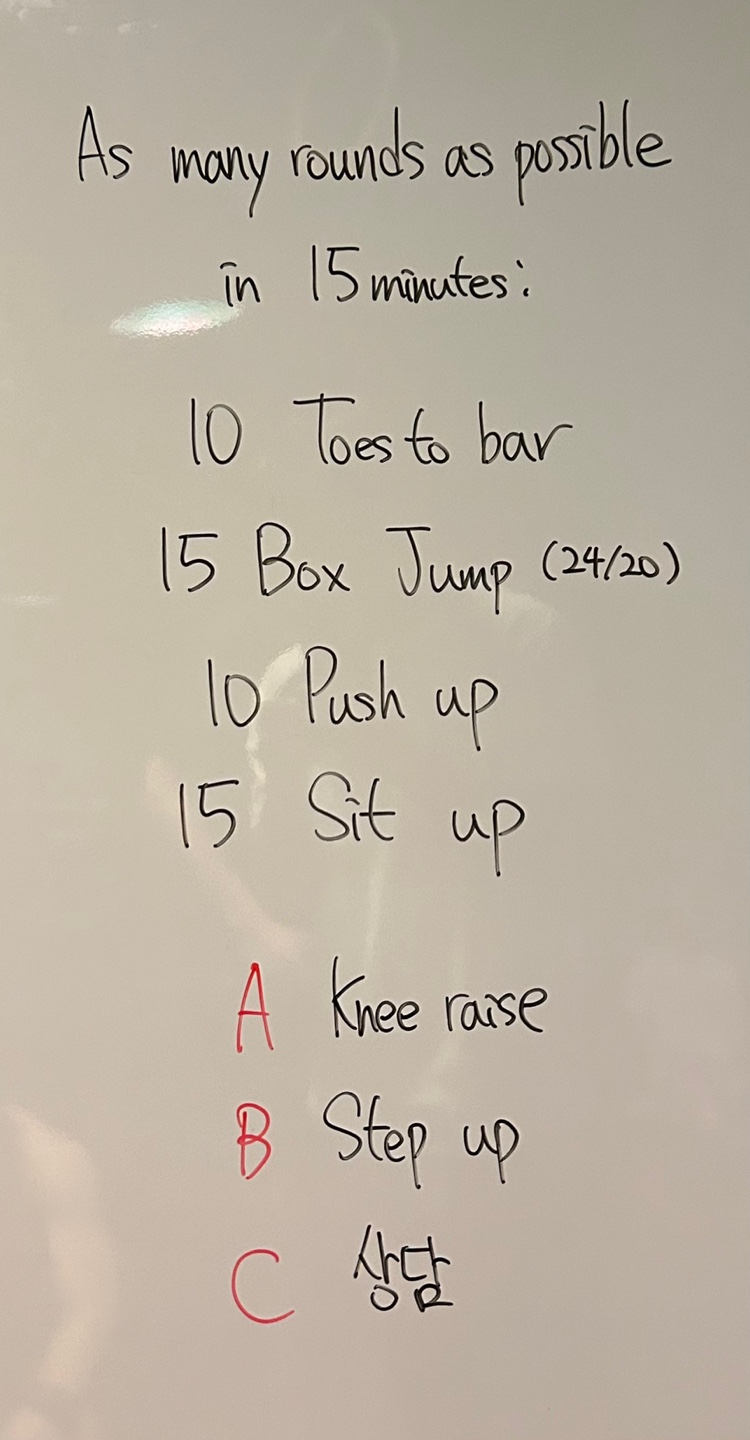 As many rounds as possible
in 15 minutes:
10 Toes to bar
15 Box Jump (24/20)
10 Push up
15 Sit up
A Knee raise
B Step up
C 상담